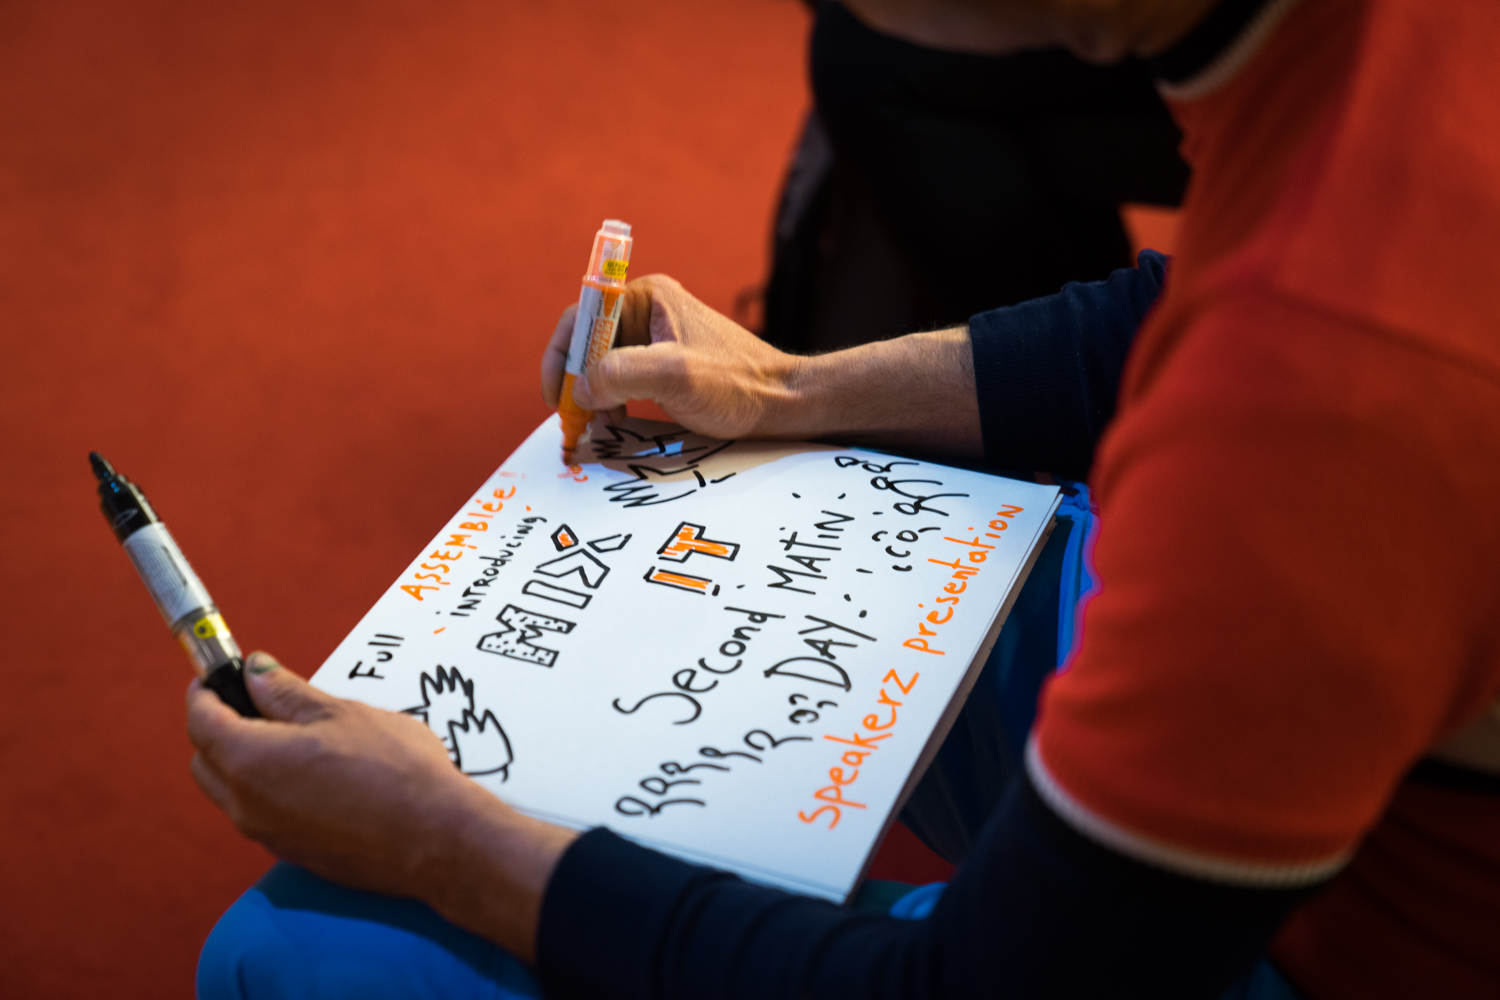 Full ASSEMBlée!
INTRODUCING
MIX IT
Second MATIN
DAY!
Speakerz présentation